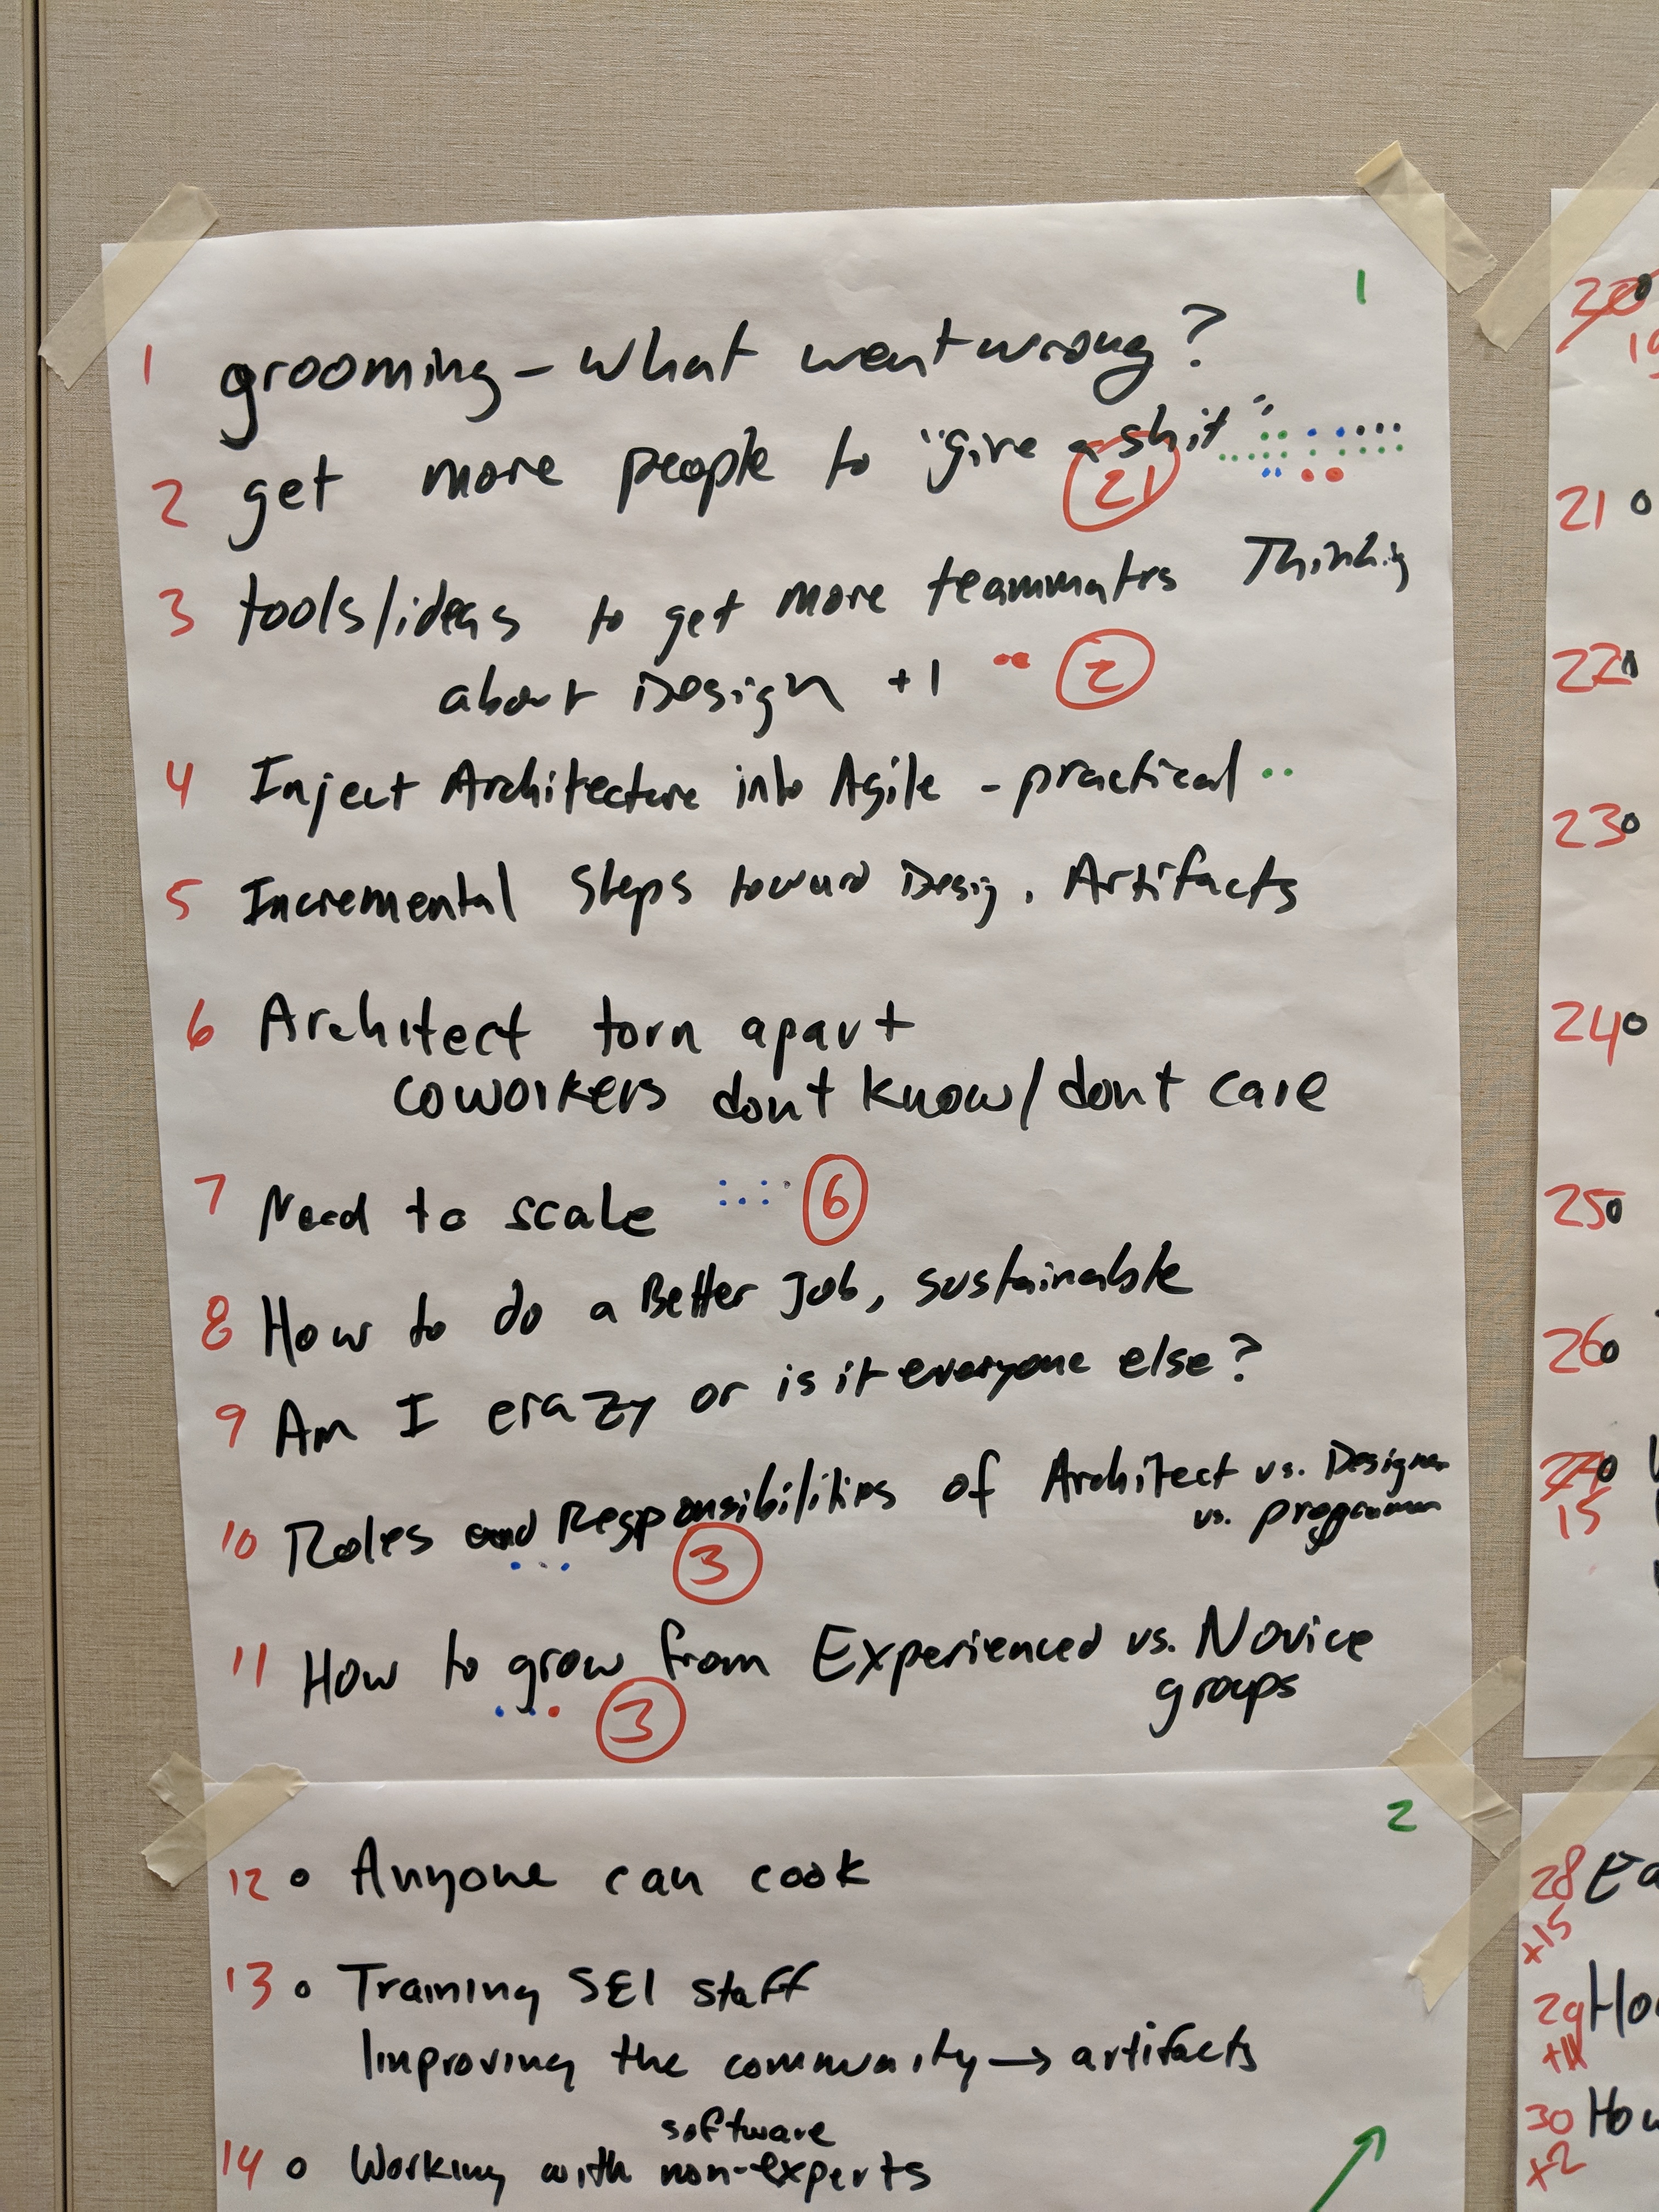 1
1 grooming - what went wrong?
2 get more people to "give a shit"
21
3 tools/ideas to get more teammates Thinking
about Design +1 2
4 Inject Architecture into Agile - practical
5 Incremental Steps toward Desig. Artifacts
6 Architect torn apart
coworkers dont know/dont care
7 Need to scale 6
8 How to do a Better Job, sustainable
9 Am I crazy or is it everyone else?
10 Roles and Responsibilities of Architect vs. Designer
vs. programmer
3
11 How to grow from Experienced vs. Novice
groups
3
2
12 o Anyone can cook
13 o Training SEI staff
Improving the community → artifacts
software
14 o Working with non-experts
20
19
21 o
22
23 o
24 o
25 o
26 o
27 o
15
28
+15
29 How
+11
30 How
+2